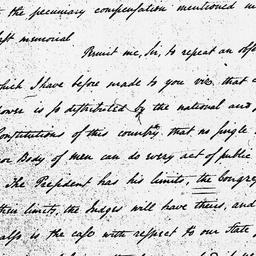 the pecuniary compensation mentioned
last memorial
Permit me, Sir, to repeat an
which I have before made to you viz. that
power is so distributed by the national and
Constitutions of this country. that no single
or Body of men can do every act of public
The President has his limits, the Congress
their limits, the Judges will have theirs, and
also is the case with respect to our State